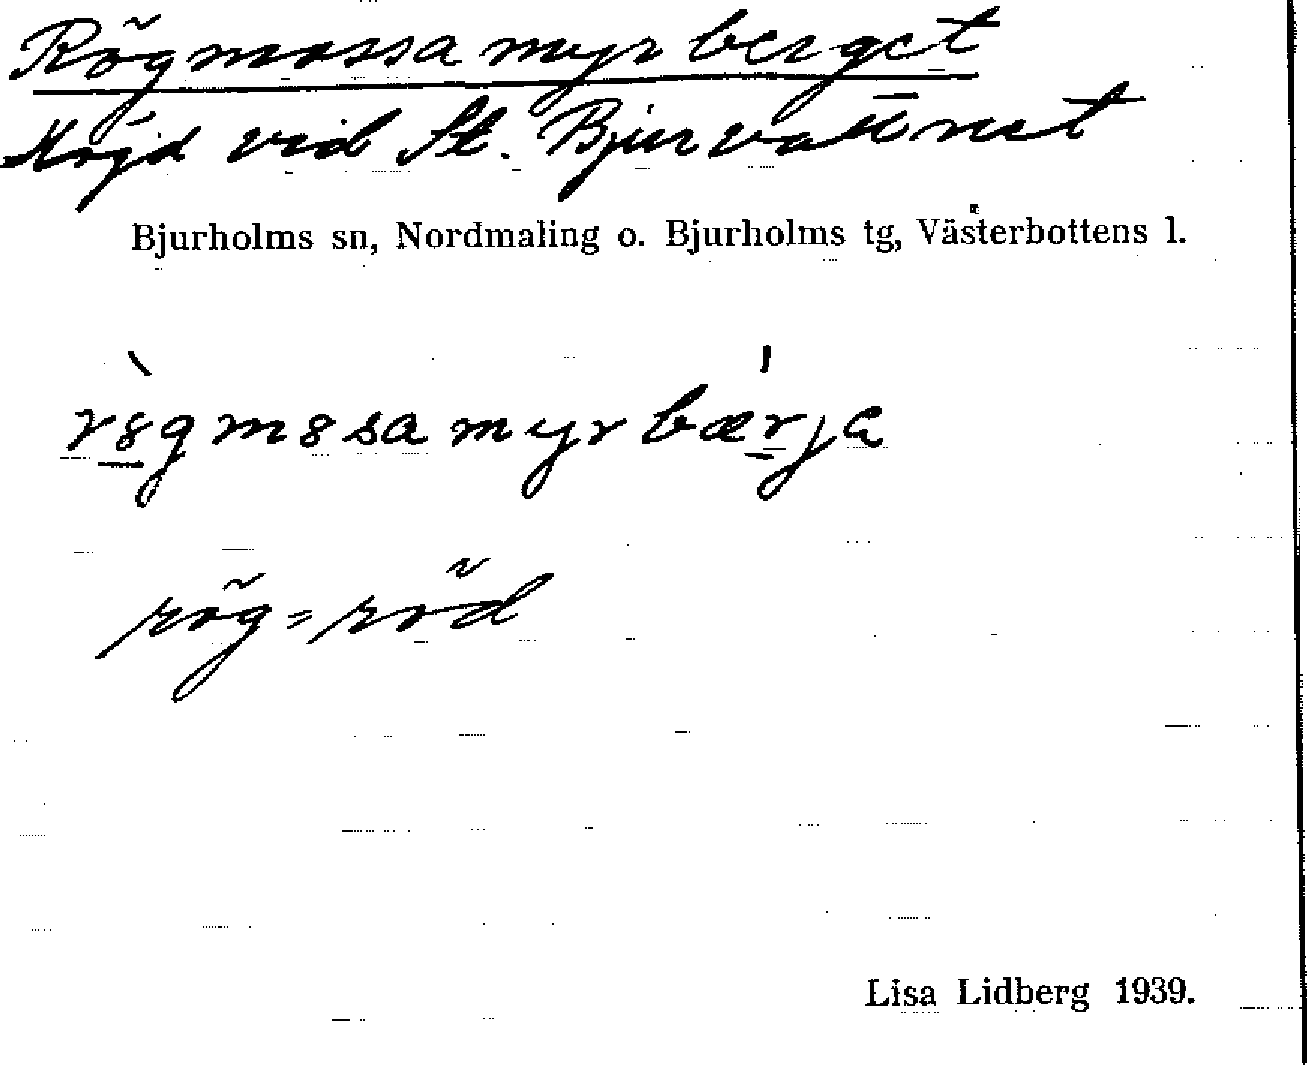 Rögmossamyrberget
Höjd vid St. Bjurvattnet
Bjurholms sn, Nordmaling o. Bjurholms tg, Västerbottens l.
rögmösamyrbærja
rög = röd
Lisa Lidberg 1939.